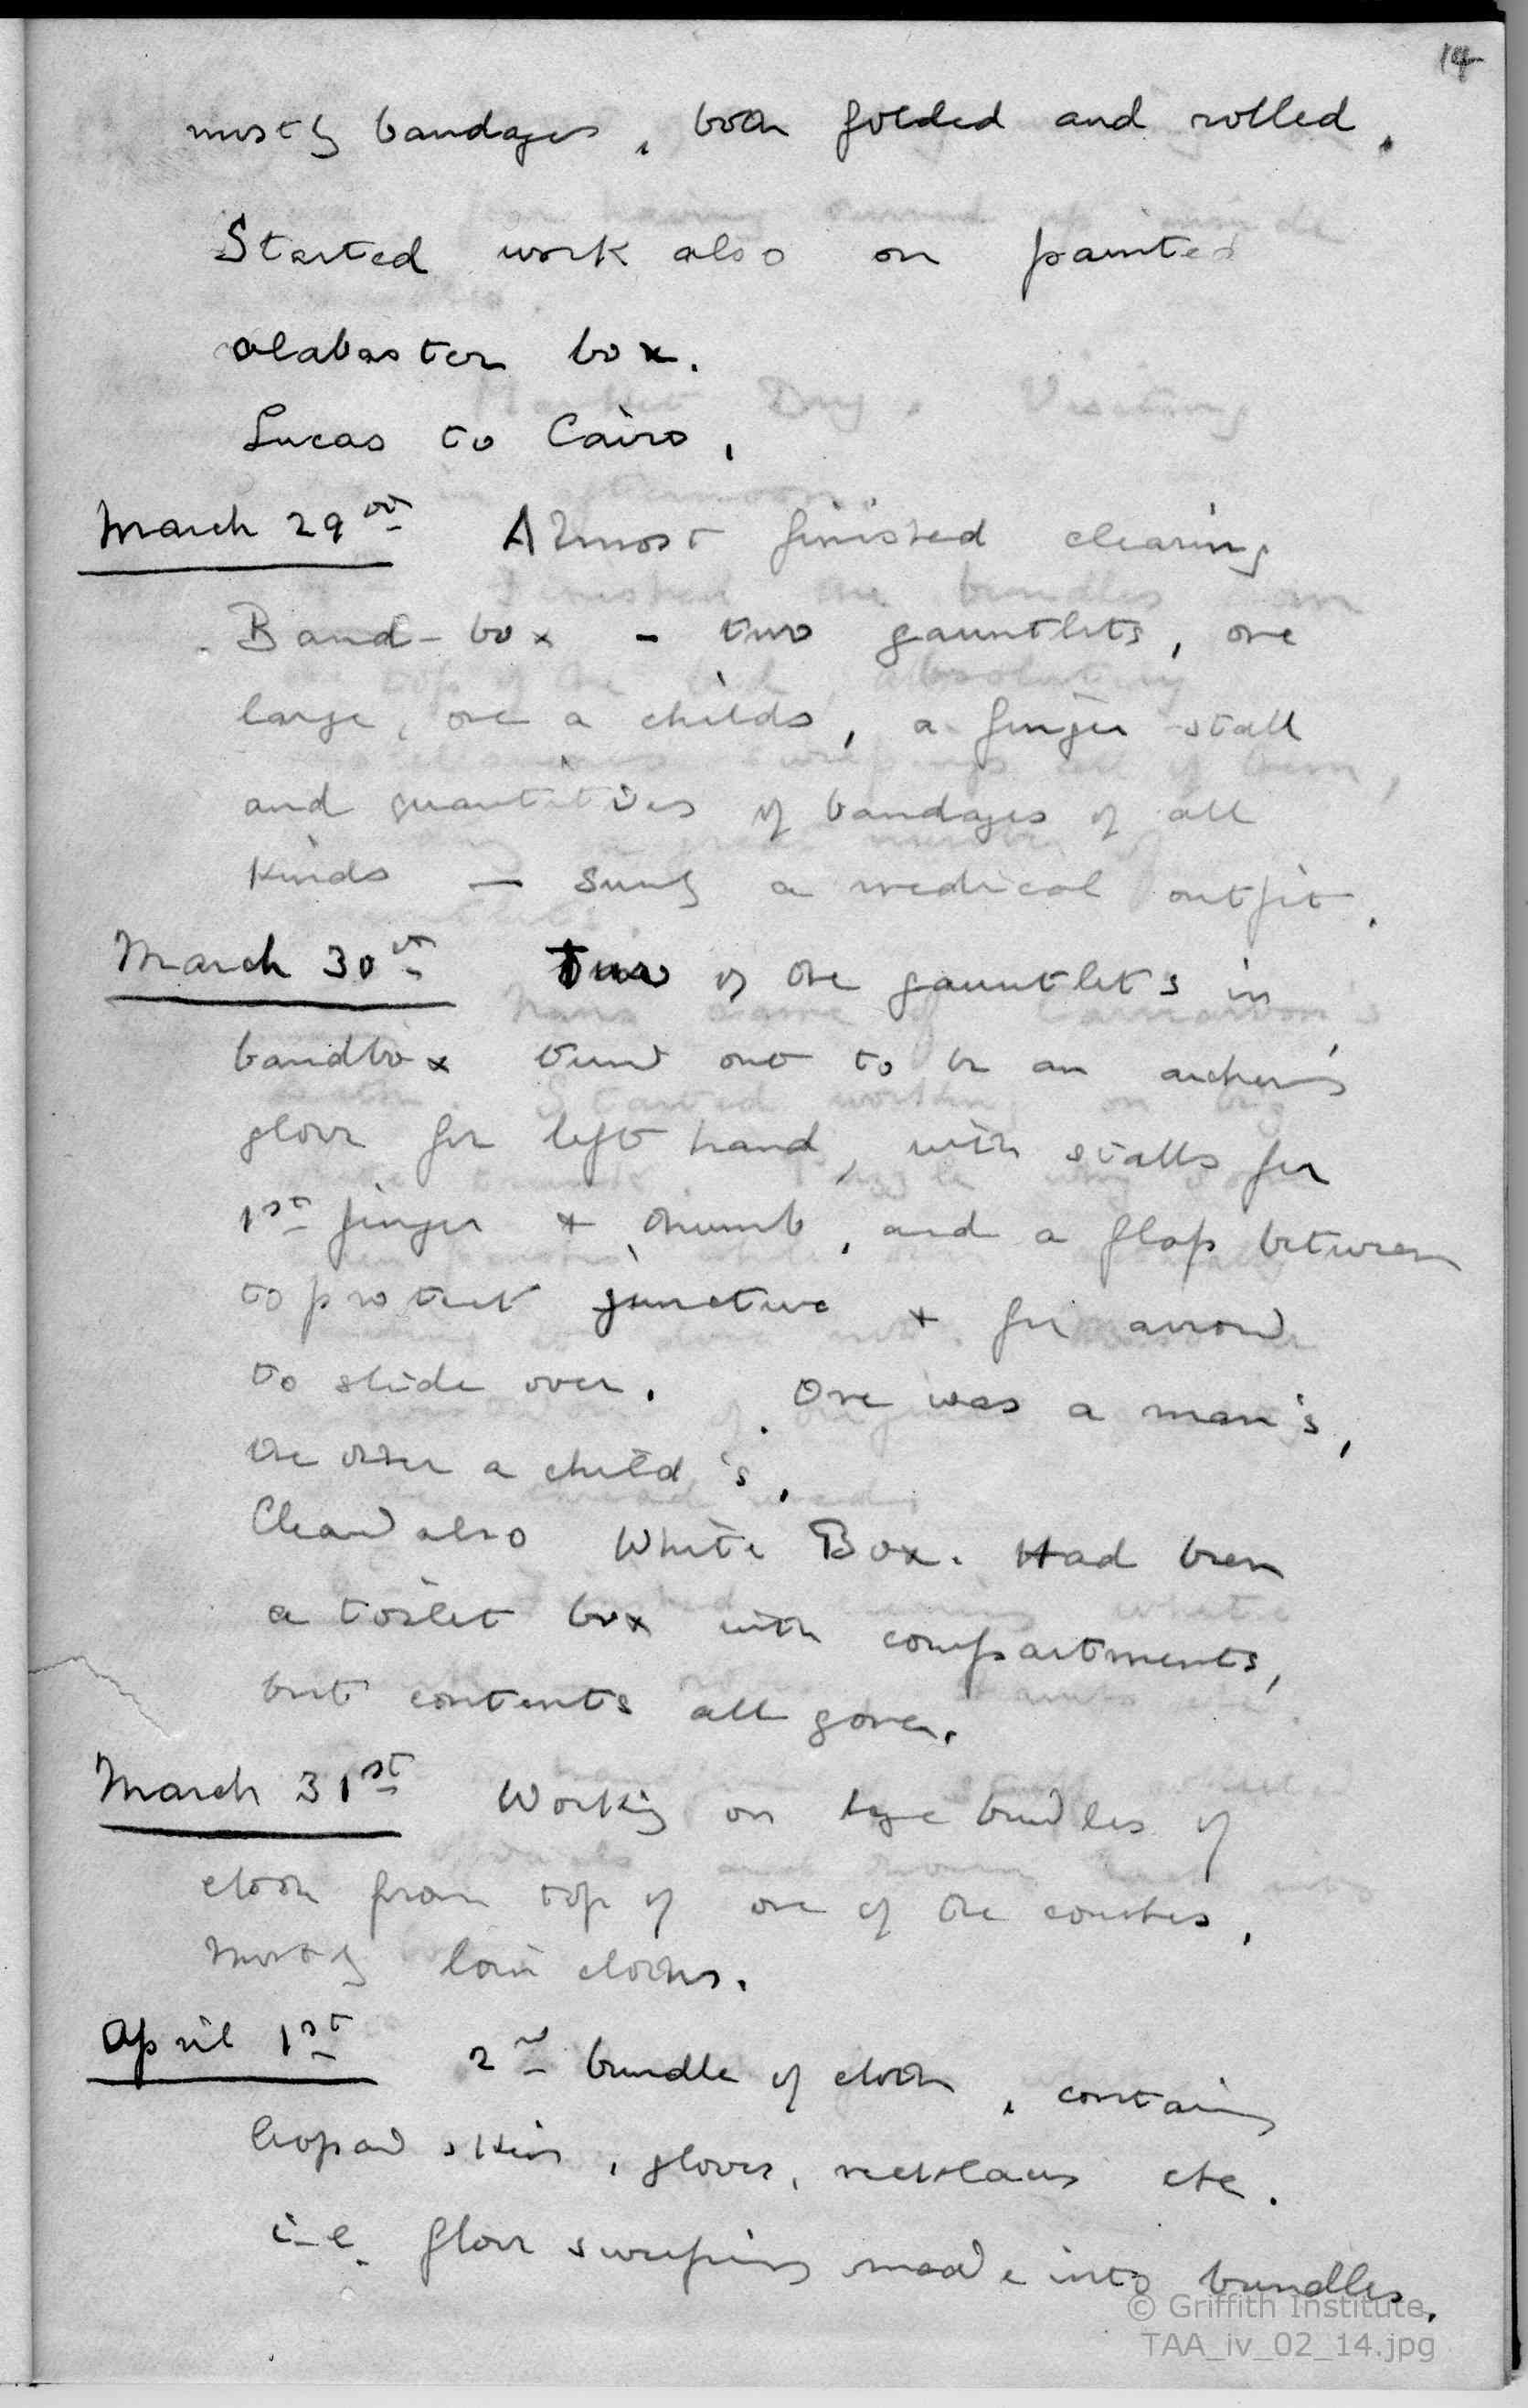 14
mostly bandages, both folded and rolled.
Started work also on painted
alabaster box.
Lucas to Cairo.
March 29th Almost finished clearing
Band-box - two gauntlets, one
large, one a childs, a finger stall
and quantities of bandages of all
kinds - surely a medical outfit.
March 30th Two of the gauntlets in
bandbox turned out to be an archer's
glove for left hand, with stalls for
1st finger & thumb, and a flap between
to protect juncture & for arrow
to slide over. One was a man's,
the other a child's.
Cleared also White Box. Had been
a toilet box with compartments,
but contents all gone.
March 31st Working on large bundles of
cloth from top of one of the couches.
Mostly loin cloths.
April 1st 2nd bundle of cloth, containing
leopard skin, gloves, necklaces etc.
i-e. floor sweepings made into bundles.
© Griffith Institute
TAA_iv_02_14.jpg